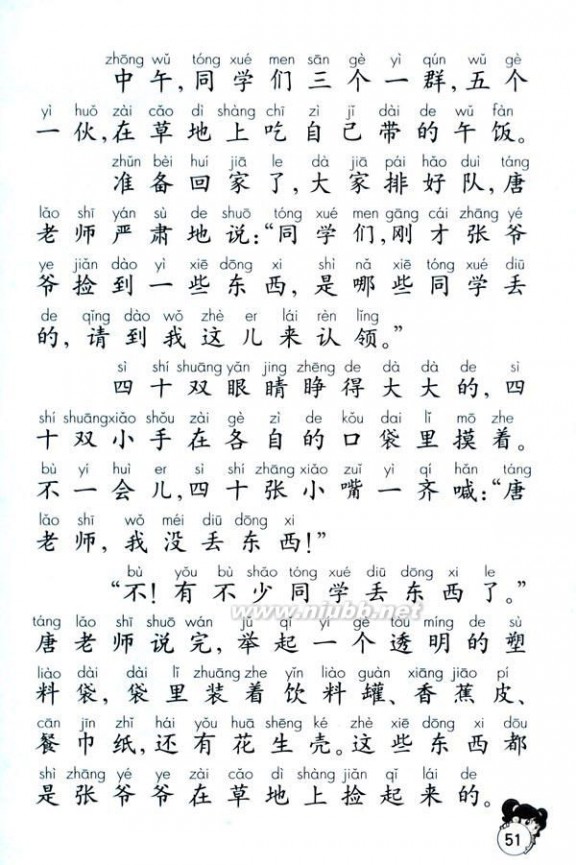 zhōng wǔ tóng xué men sān gè yì qún wǔ gè
中午,同学们三个一群,五个
yì huǒ zài cǎo dì shàng chī zì jǐ dài de wǔ fàn
一伙,在草地上吃自己带的午饭。
zhǔn bèi huí jiā le dà jiā pái hǎo duì táng
准备回家了,大家排好队,唐
lǎo shī yán sù de shuō tóng xué men gāng cái zhāng yé
老师严肃地说:“同学们,刚才张爷
ye jiǎn dào yì xiē dōng xi shì nǎ xiē tóng xué diū
爷捡到一些东西,是哪些同学丢
de qǐng dào wǒ zhè er lái rèn lǐng
的,请到我这儿来认领。”
sì shí shuāng yǎn jing zhēng de dà dà de sì
四十双眼睛睁得大大的,四
shí shuāng xiǎo shǒu zài gè zì de kǒu dai lǐ mō zhe
十双小手在各自的口袋里摸着。
bù yí huì er sì shí zhāng xiǎo zuǐ yì qí hǎn táng
不一会儿,四十张小嘴一齐喊:“唐
lǎo shī wǒ méi diū dōng xi
老师,我没丢东西!”
bù yǒu bù shǎo tóng xué diū dōng xi le
“不!有不少同学丢东西了。”
www.niubb.net
táng lǎo shī shuō wán jǔ qǐ yí gè tòu míng de sù
唐老师说完,举起一个透明的塑
liào dài dài lǐ zhuāng zhe yǐn liào guàn xiāng jiāo pí
料袋,袋里装着饮料罐、香蕉皮、
cān jīn zhǐ hái yǒu huā shēng ké zhè xiē dōng xi dōu
餐巾纸,还有花生壳。这些东西都
shì zhāng yé ye zài cǎo dì shàng jiǎn qǐ lái de
是张爷爷在草地上捡起来的。
51